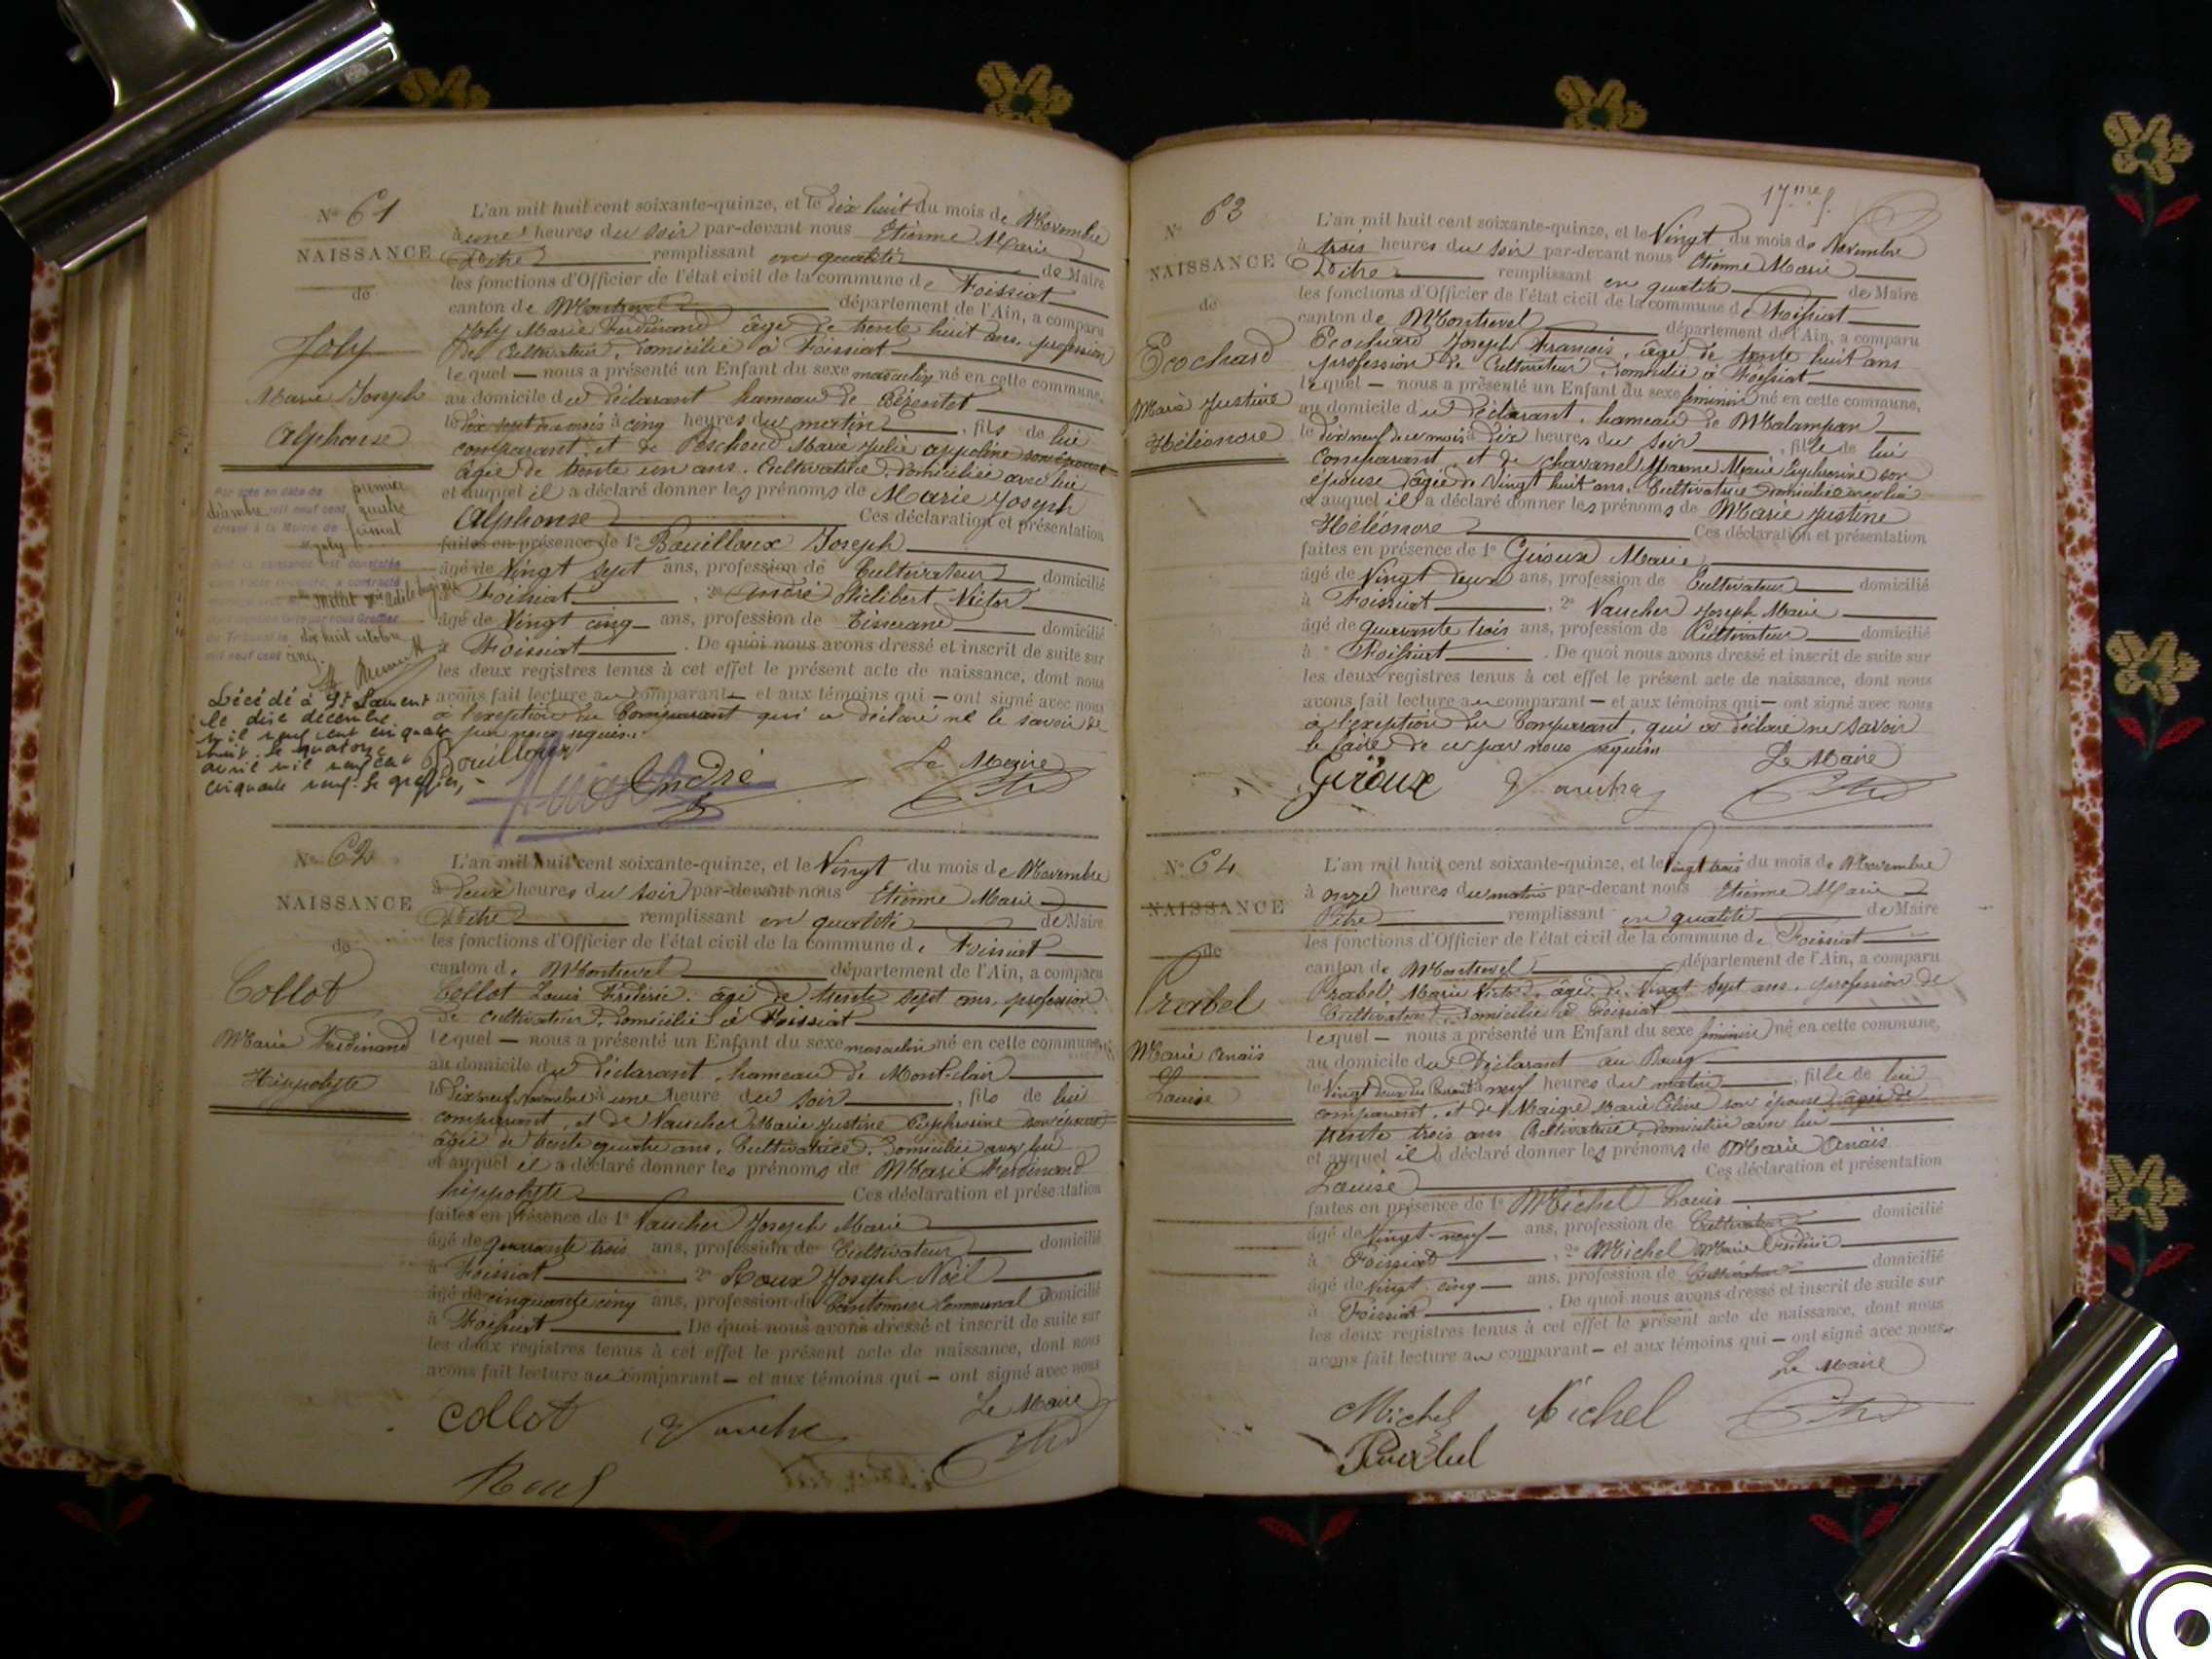 N° 61
NAISSANCE
de
Joly
Marie Joseph
Alphonse
Par acte en date du premier
décembre mil neuf cent quatre
dressé à la Mairie de
Joly
dix huit octobre
mil neuf cent cinq.
Décédé à St Laurent
le dix décembre
mil neuf cent cinquante
huit. Le quatorze
avril mil neuf cent
cinquante neuf. Le greffier,
L'an mil huit cent soixante-quinze, et le dix huit du mois de Novembre
à une heures du soir par-devant nous Etienne Marie
Pitre remplissant en qualité de Maire
les fonctions d'Officier de l'état civil de la commune de Foissiat
canton de Montrevel département de l'Ain, a comparu
Joly Marie Ferdinand âgé de trente huit ans, profession
de Cultivateur, domicilié à Foissiat
lequel — nous a présenté un Enfant du sexe masculin né en cette commune,
au domicile du déclarant hameau de
le dix sept du mois à cinq heures du matin, fils de lui
comparant et de Marie Julie appoline son épouse
âgée de trente un ans, Cultivatrice, domiciliée avec lui
et auquel il a déclaré donner les prénoms de Marie Joseph
Alphonse Ces déclaration et présentation
faites en présence de 1° Bouilloux Joseph
âgé de Vingt sept ans, profession de Cultivateur domicilié
à Foissiat, 2° André Philibert Victor
âgé de Vingt cinq ans, profession de Tisserand domicilié
à Foissiat. De quoi nous avons dressé et inscrit de suite sur
les deux registres tenus à cet effet le présent acte de naissance, dont nous
avons fait lecture au comparant — et aux témoins qui — ont signé avec nous
à l'exeption du Comparant qui a déclaré ne le savoir de
par nous requis.
Bouilloux André Le Maire
N° 62
NAISSANCE
de
Collot
Marie Ferdinand
Hippolyte
L'an mil huit cent soixante-quinze, et le Vingt du mois de Novembre
à deux heures du soir par-devant nous Etienne Marie
Pitre remplissant en qualité de Maire
les fonctions d'Officier de l'état civil de la commune de Foissiat
canton de Montrevel département de l'Ain, a comparu
Collot Louis Frédéric, âgé de trente sept ans, profession
de cultivateur, domicilié à Foissiat
lequel — nous a présenté un Enfant du sexe masculin né en cette commune,
au domicile du déclarant, hameau de Montclair
le dix neuf Novembre à une heure du soir, fils de lui
comparant, et de Vaucher Marie Justine Euphrosine son épouse
âgée de trente quatre ans, Cultivatrice, domiciliée avec lui
et auquel il a déclaré donner les prénoms de Marie Ferdinand
hippolyte Ces déclaration et présentation
faites en présence de 1° Vaucher Joseph Marie
âgé de quarante trois ans, profession de Cultivateur domicilié
à Foissiat 2° Roux Joseph Noël
âgé de cinquante cinq ans, profession de Cantonnier Communal domicilié
à Foissiat De quoi nous avons dressé et inscrit de suite sur
les deux registres tenus à cet effet le présent acte de naissance, dont nous
avons fait lecture au comparant — et aux témoins qui — ont signé avec nous
Le Maire
Collot Vaucher
Roux
17me f.
N° 63
NAISSANCE
de
Ecochard
Marie Justine
Héléonore
L'an mil huit cent soixante-quinze, et le Vingt du mois de Novembre
à trois heures du soir par-devant nous Etienne Marie
Pitre remplissant en qualité de Maire
les fonctions d'Officier de l'état cicil de la commune de Foissiat
canton de Montrevel département de l'Ain, a comparu
Ecochard Joseph François, âgé de trente huit ans
profession de Cultivateur, domicilié à Foissiat
lequel — nous a présenté un Enfant du sexe féminin né en cette commune,
au domicile du déclarant, hameau de Malampan
le dix neuf du mois à dix heures du soir, fille de lui
Comparant et de Chavanel Marie Euphrosine son
épouse âgée de Vingt huit ans, Cultivatrice domiciliée avec lui
et auquel il a déclaré donner les prénoms de Marie Justine
Héléonore Ces déclaration et présentation
faites en présence de 1° Giroux Marie
âgé de Vingt deux ans, profession de Cultivateur domicilié
à Foissiat, 2° Vaucher Joseph Marie
âgé de quarante trois ans, profession de Cultivateur domicilié
à Foissiat. De quoi nous avons dressé et inscrit de suite sur
les deux registres tenus à cet effet le présent acte de naissance, dont nous
avons fait lecture au comparant — et aux témoins qui — ont signé avec nous
à l'exeption du Comparant, qui a déclaré ne savoir
le faire de ce par nous requis
Le Maire
Giroux Vaucher
N° 64
NAISSANCE
de
Prabel
Marie Anaïs
Louise
L'an mil huit cent soixante-quinze, et le Vingt trois du mois de Novembre
à onze heures du matin par-devant nous Etienne Marie
Pitre remplissant en qualité de Maire
les fonctions d'Officier de l'état civil de la commune de Foissiat
canton de Montrevel département de l'Ain, a comparu
Prabel Marie Victor, âgé de Vingt sept ans, profession de
Cultivateur, domicilié à Foissiat
lequel — nous a présenté un Enfant du sexe féminin né en cette commune,
au domicile du Déclarant au Bourg
le Vingt deux du Courant à neuf heures du matin, fille de lui
comparant, et de Maigre Marie Céline son épouse, âgée de
trente trois ans Cultivatrice, domiciliée avec lui
et auquel il a déclaré donner les prénoms de Marie Anaïs
Louise Ces déclaration et présentation
faites en présence de 1° Michel Louis
âgé de Vingt-neuf ans, profession de Cultivateur domicilié
à Foissiat, 2° Michel Marie
âgé de Vingt cinq ans, profession de Cultivateur domicilié
à Foissiat. De quoi nous avons dressé et inscrit de suite sur
les deux registres tenus à cet effet le présent acte de naissance, dont nous
avons fait lecture au comparant — et aux témoins qui — ont signé avec nous
Le Maire
Michel Michel